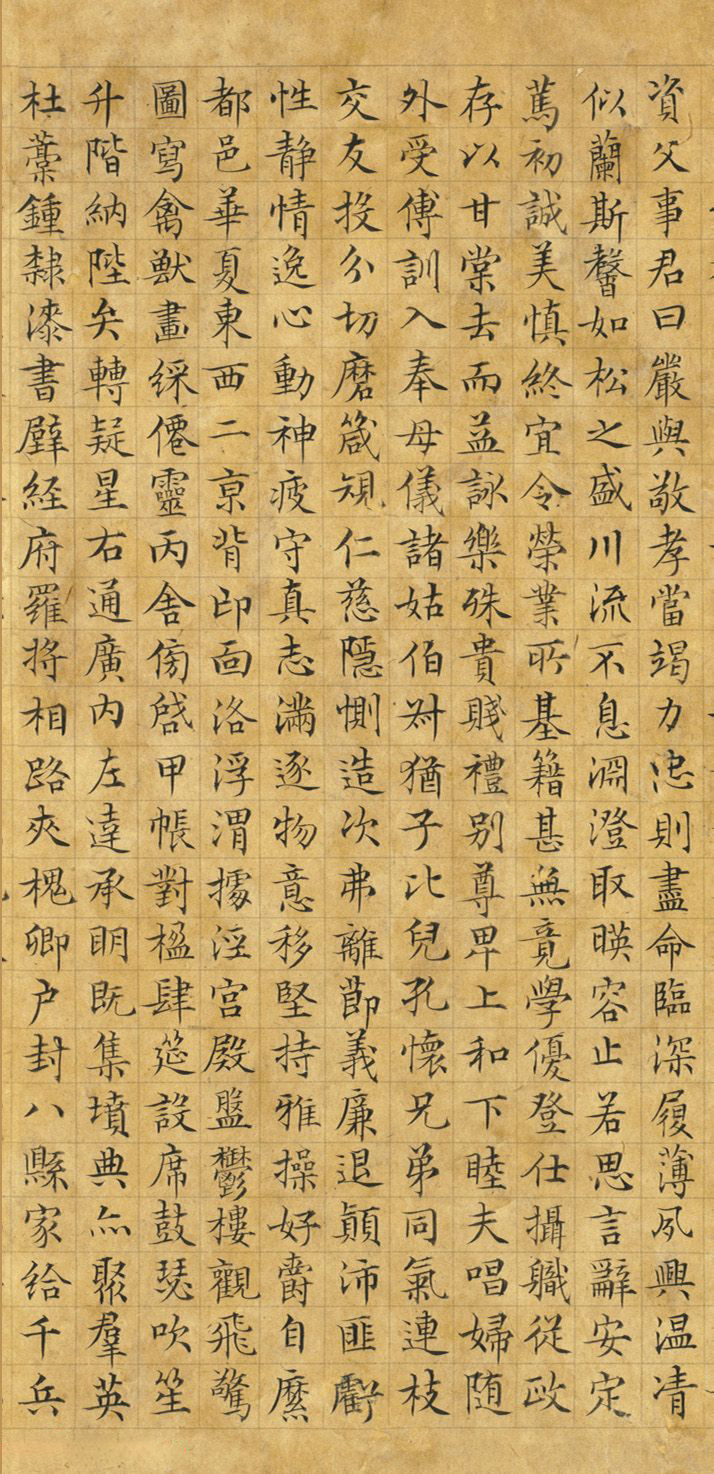 資父事君曰嚴與敬孝當竭力忠則盡命臨深履薄夙興温凊
似蘭斯馨如松之盛川流不息淵澄取暎容止若思言辭安定
篤初誠美慎終宜令榮業所基籍甚無竟學優登仕攝職從政
存以甘棠去而益詠樂殊貴賤禮别尊卑上和下睦夫唱婦随
外受傅訓入奉母儀諸姑伯叔猶子比兒孔懷兄弟同氣連枝
交友投分切磨箴規仁慈隱惻造次弗離節義廉退顛沛匪虧
性静情逸心動神疲守真志滿逐物意移堅持雅操好爵自縻
都邑華夏東西二京背邙面洛浮渭據涇宮殿盤鬱樓觀飛驚
圖寫禽獸畫綵僊靈丙舍傍啓甲帳對楹肆筵設席鼓瑟吹笙
升階納陛弁轉疑星右通廣内左達承明既集墳典亦聚羣英
杜藁鍾隸漆書壁経府羅將相路夾槐卿户封八縣家給千兵